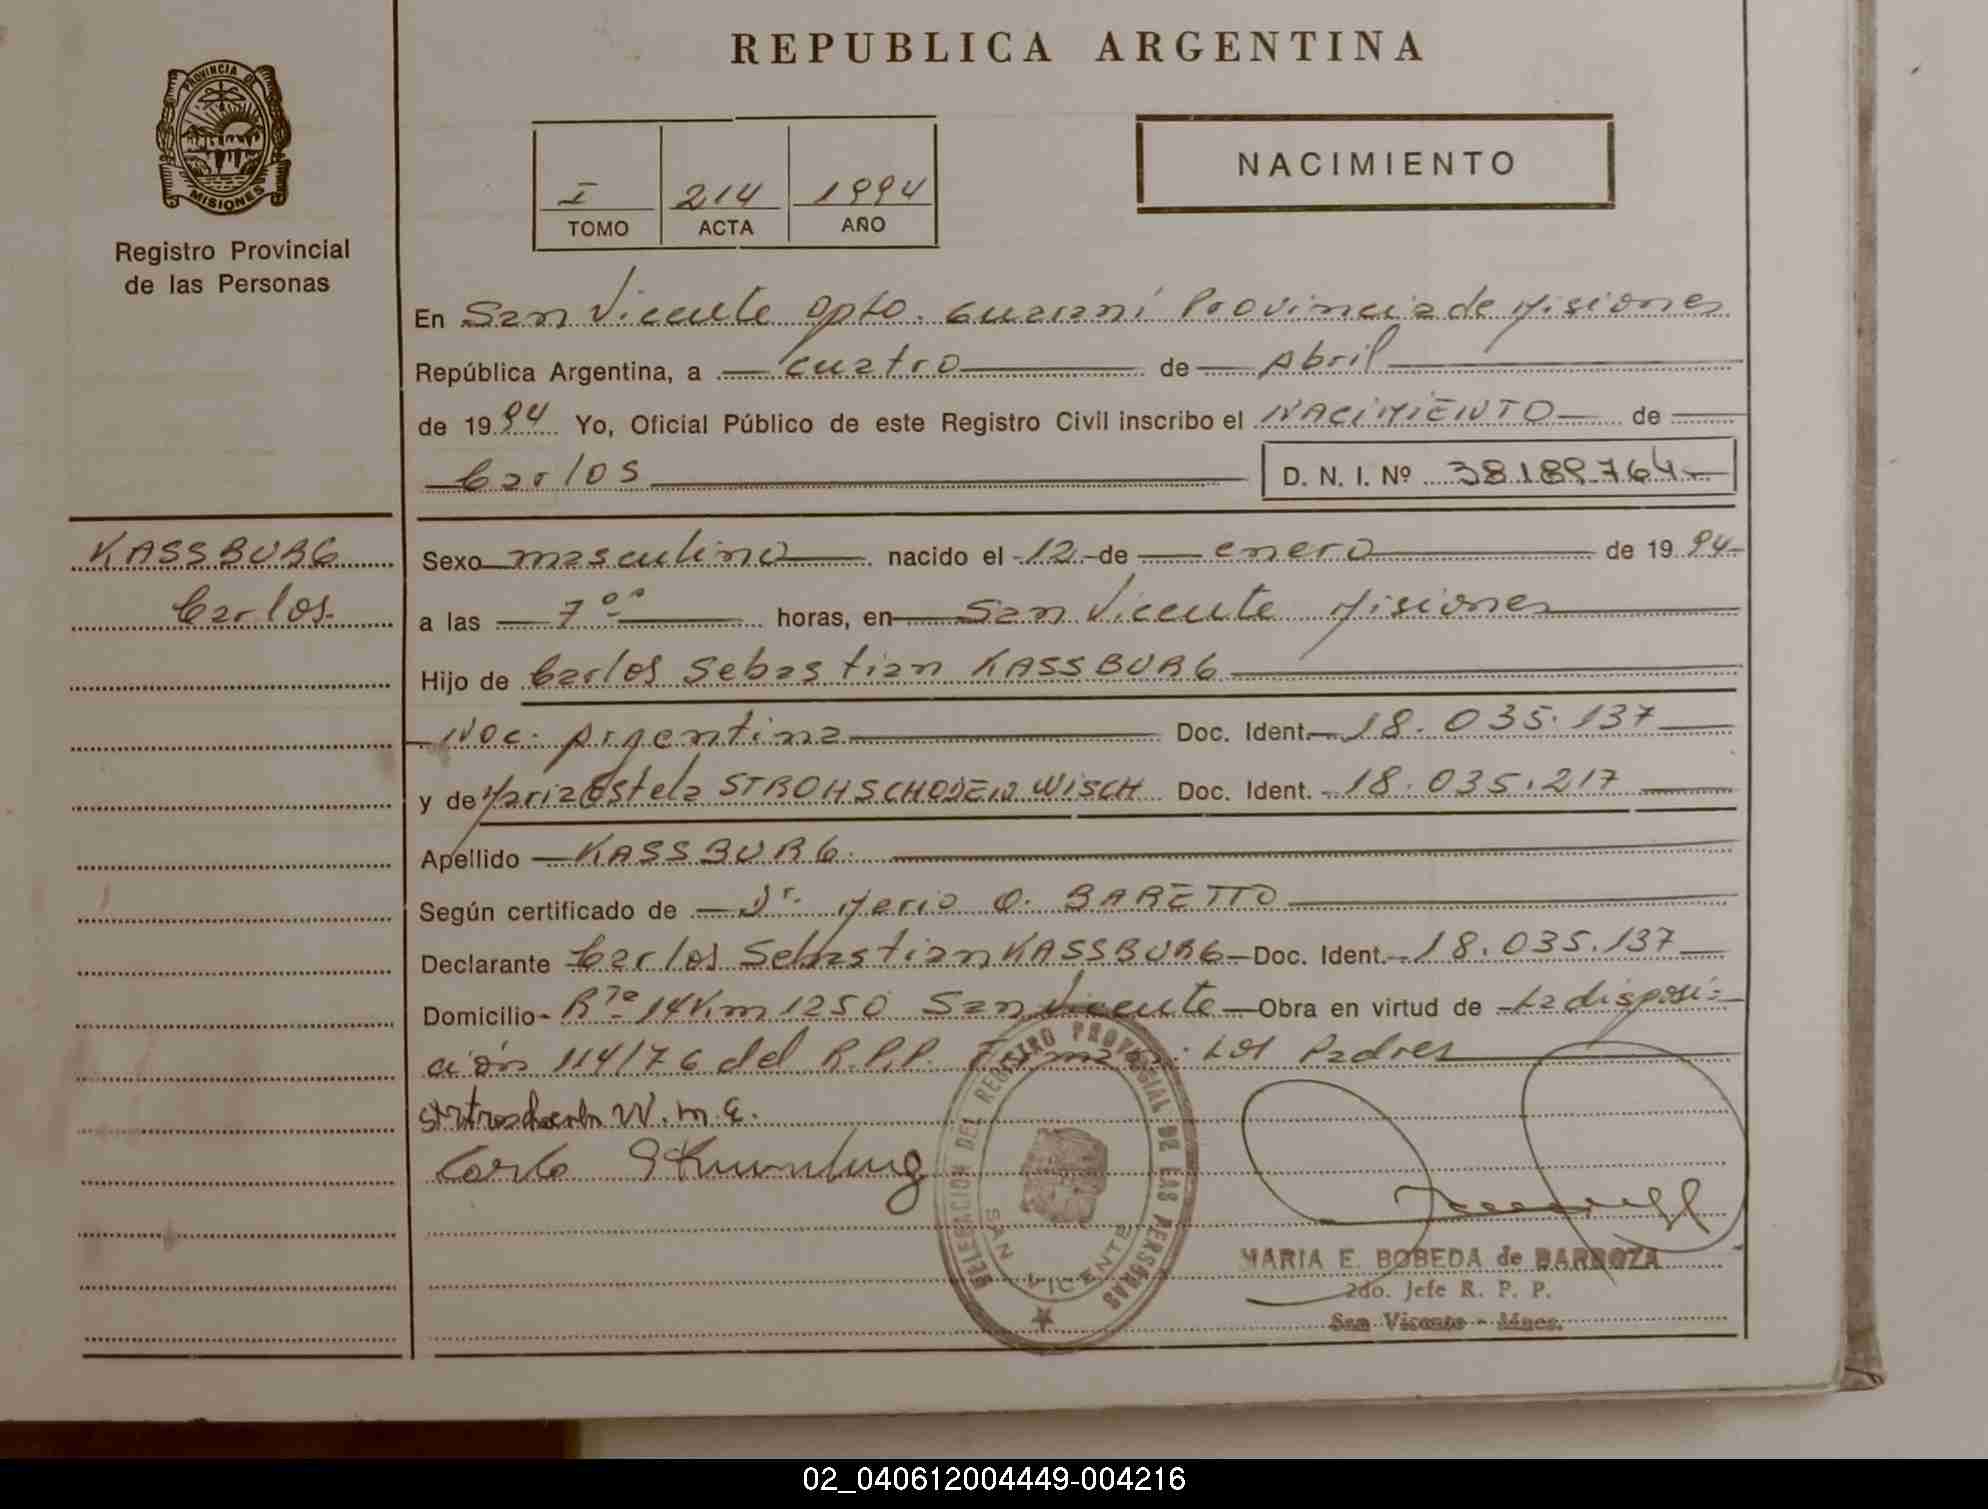 REPUBLICA ARGENTINA
PROVINCIA DE
MISIONES
Registro Provincial
de las Personas
I 214 1994
TOMO ACTA AÑO
NACIMIENTO
En San Vicente Dpto. Guaraní Provincia de Misiones
República Argentina, a cuatro de Abril
de 1994 Yo, Oficial Público de este Registro Civil inscribo el NACIMIENTO de
Carlos D. N. I. Nº 38.189.764.-
KASSBURG
Carlos.
Sexo masculino nacido el 12 de enero de 1994
a las 7ºº horas, en San Vicente Misiones
Hijo de Carlos Sebastian KASSBURG
Nac. Argentina Doc. Ident. 18.035.137
y de Maria Estela STROHSCHOEIN WISCH Doc. Ident. 18.035.217
Apellido KASSBURG.
Según certificado de Dr. Mario O. BARETTO
Declarante Carlos Sebastian KASSBURG Doc. Ident. 18.035.137
Domicilio Rta 14 Km 1250 San Vicente Obra en virtud de La disposi-
ción 114/76 del R.P.P. Firman: Los Padres
W. M. E.
DELEGACION DEL REGISTRO PROVINCIAL DE LAS PERSONAS
SAN VICENTE
MARIA E. BOBEDA de BARBOZA
2do. Jefe R. P. P.
San Vicente - Mnes.
02_040612004449-004216